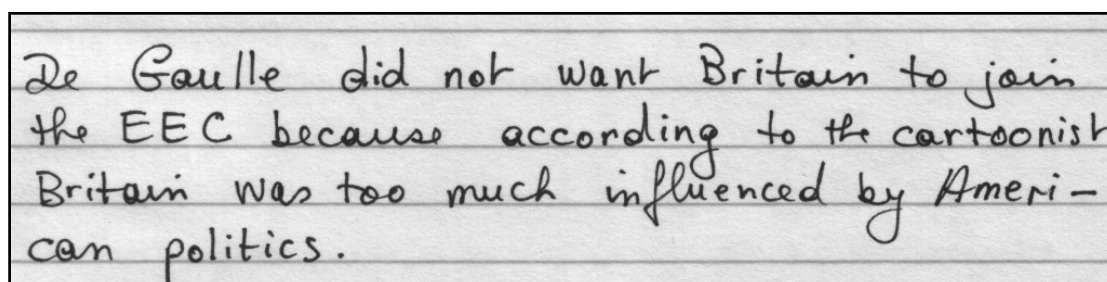 De Gaulle did not want Britain to join
the EEC because according to the cartoonist
Britain was too much influenced by Ameri-
can politics.